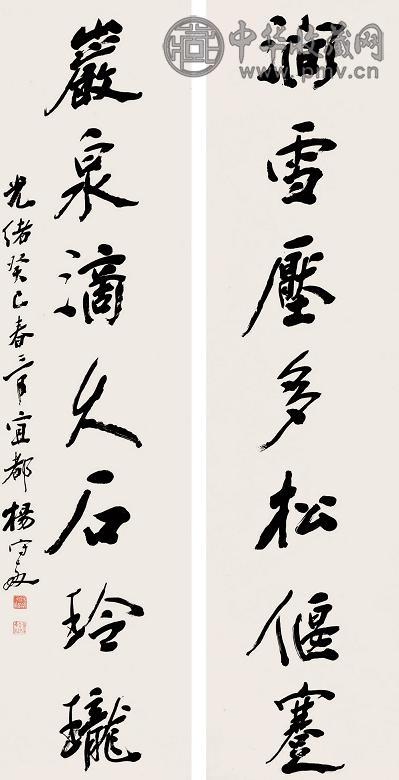 中华收藏网
www.pmv.cn
澗雪壓多松偃蹇
巖泉滴久石玲瓏
光緒癸巳春三月宜都楊守敬